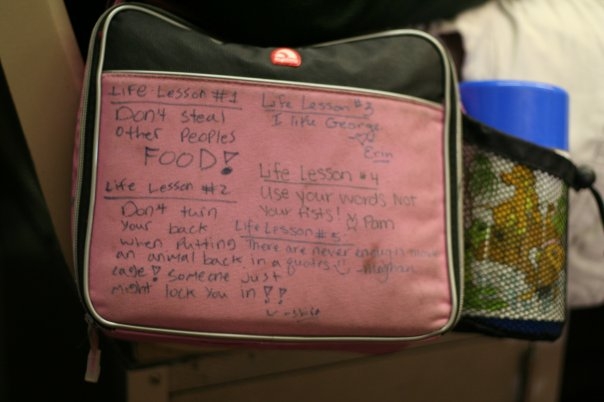 Life Lesson #1
Don't steal
other Peoples
FOOD!
Life Lesson #2
Don't turn
your back
when Putting
an animal back in a
cage! Someone just
might lock you in!!
Life Lesson #3
I like George
Erin
Life Lesson #4
Use your words Not
your fists! Pam
Life Lesson #5
There are never enough move
quotes -meghan